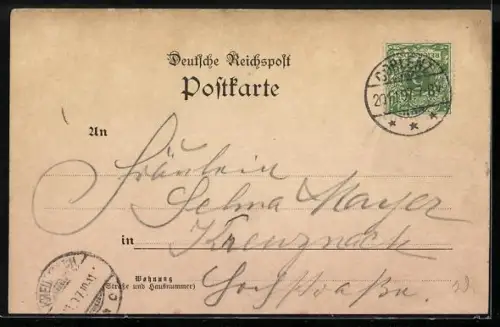 Deutsche Reichspost
Postkarte
COBLENZ
An
Fräulein
Selma Mayer
in Kreuznach
Wohnung
(Straße und Hausnummer)
Hochstraße.